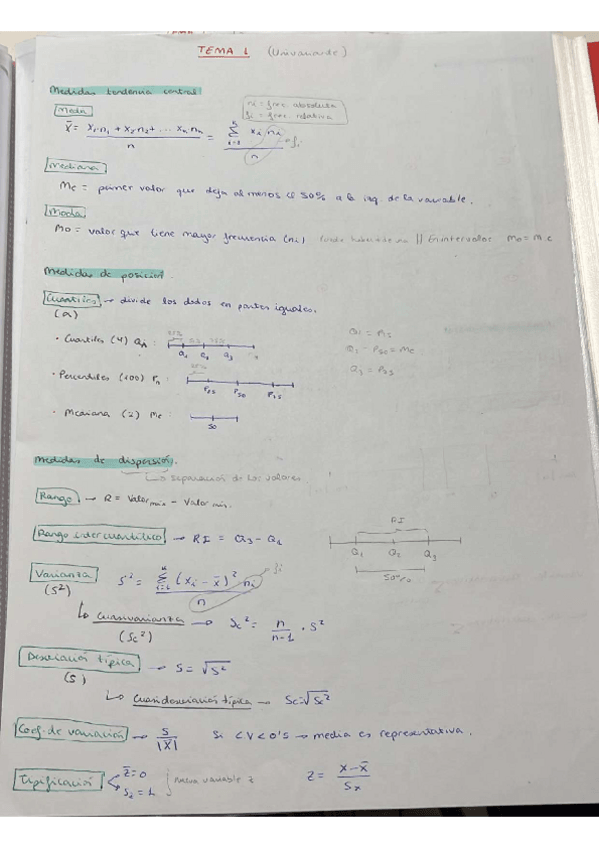 TEMA 1 (Univariante)
Medidas tendencia central
ni = frec. absoluta
fi = frec. relativa
Media
x̄ = x₁·n₁ + x₂·n₂ + ... xₙ nₙ / n = Σ xi ni / n fi
Mediana
Me = primer valor que deja al menos el 50% a la izq. de la variable.
Moda
Mo = valor que tiene mayor frecuencia (ni) || En intervalos Mo = Mc
Medidas de posición.
Cuantiles → divide los datos en partes iguales.
(a)
• Cuartiles (4) Q : 25%
Q₁ Q₂ Q₃
Q₁ = P₂₅
Q₂ = P₅₀ = Me
Q₃ = P₇₅
• Percentiles (100) Pₙ : 25%
P₂₅ P₅₀ P₇₅
• Mediana (2) Me :
50
Medidas de dispersión.
↳ separación de los valores
Rango → R = Valor - Valor min.
Rango intercuartílico → RI = Q₃ - Q₁
RI
Q₁ Q₂ Q₃
50%
Varianza s² = Σ (xi - x̄)² ni / n fi
(s²)
↳ cuasivarianza → Sc² = n / n-1 · s²
(Sc²)
Desviación típica → S = √s²
(s)
↳ cuasidesviación típica → Sc = √Sc²
Coef. de variación → S / |x̄| Si CV < 0'5 → media es representativa.
Tipificación z̄ = 0
Sz = 1 nueva variable z
Z = x - x̄ / Sx